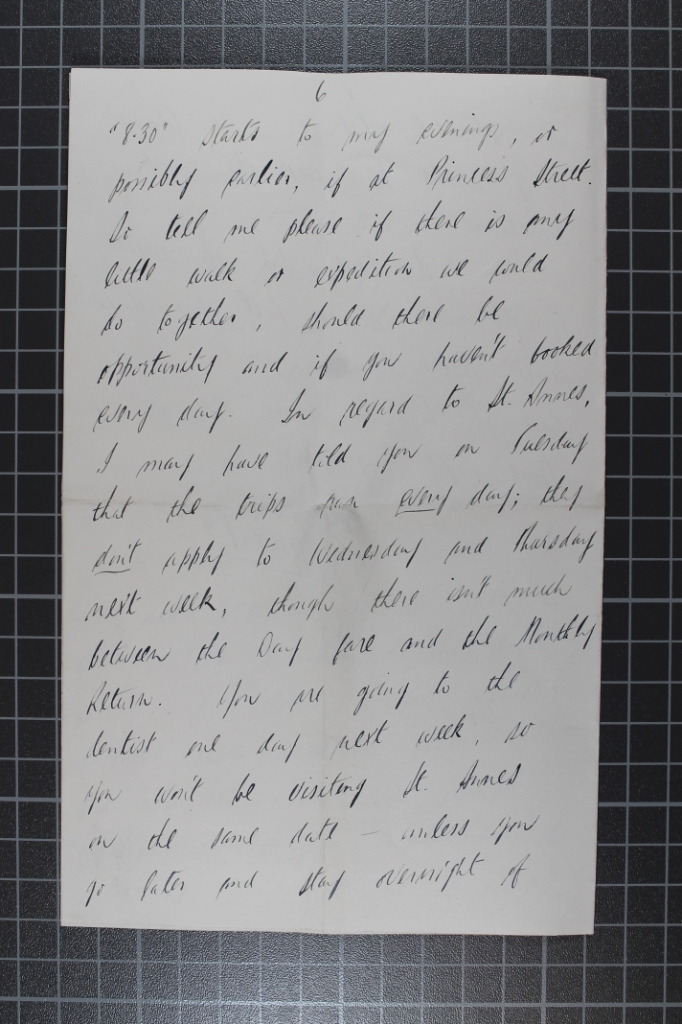 6
"8.30" starts to my evenings, or
possibly earlier, if at Princess Street.
So tell me please if there is any
little walk or expedition we could
do together, should there be
opportunity and if you haven't booked
every day. In regard to St. Annes,
I may have told you on Tuesday
that the trips run every day; they
don't apply to Wednesday and Thursday
next week, though there isn't much
between the Day fare and the Monthly
Return. You are going to the
dentist one day next week, so
you won't be visiting St. Annes
on the same date – unless you
go later and stay overnight of